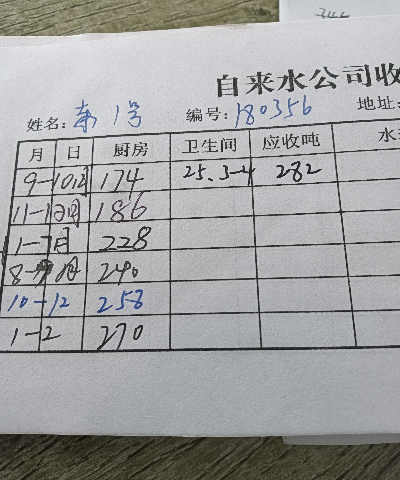 自来水公司收
姓名: 东1号 编号: 180356 地址:
月 日 厨房 卫生间 应收吨 水
9-10月 174 25.3-4 282
11-12月 186
1-7月 228
8-9月 240
10-12 258
1-2 270